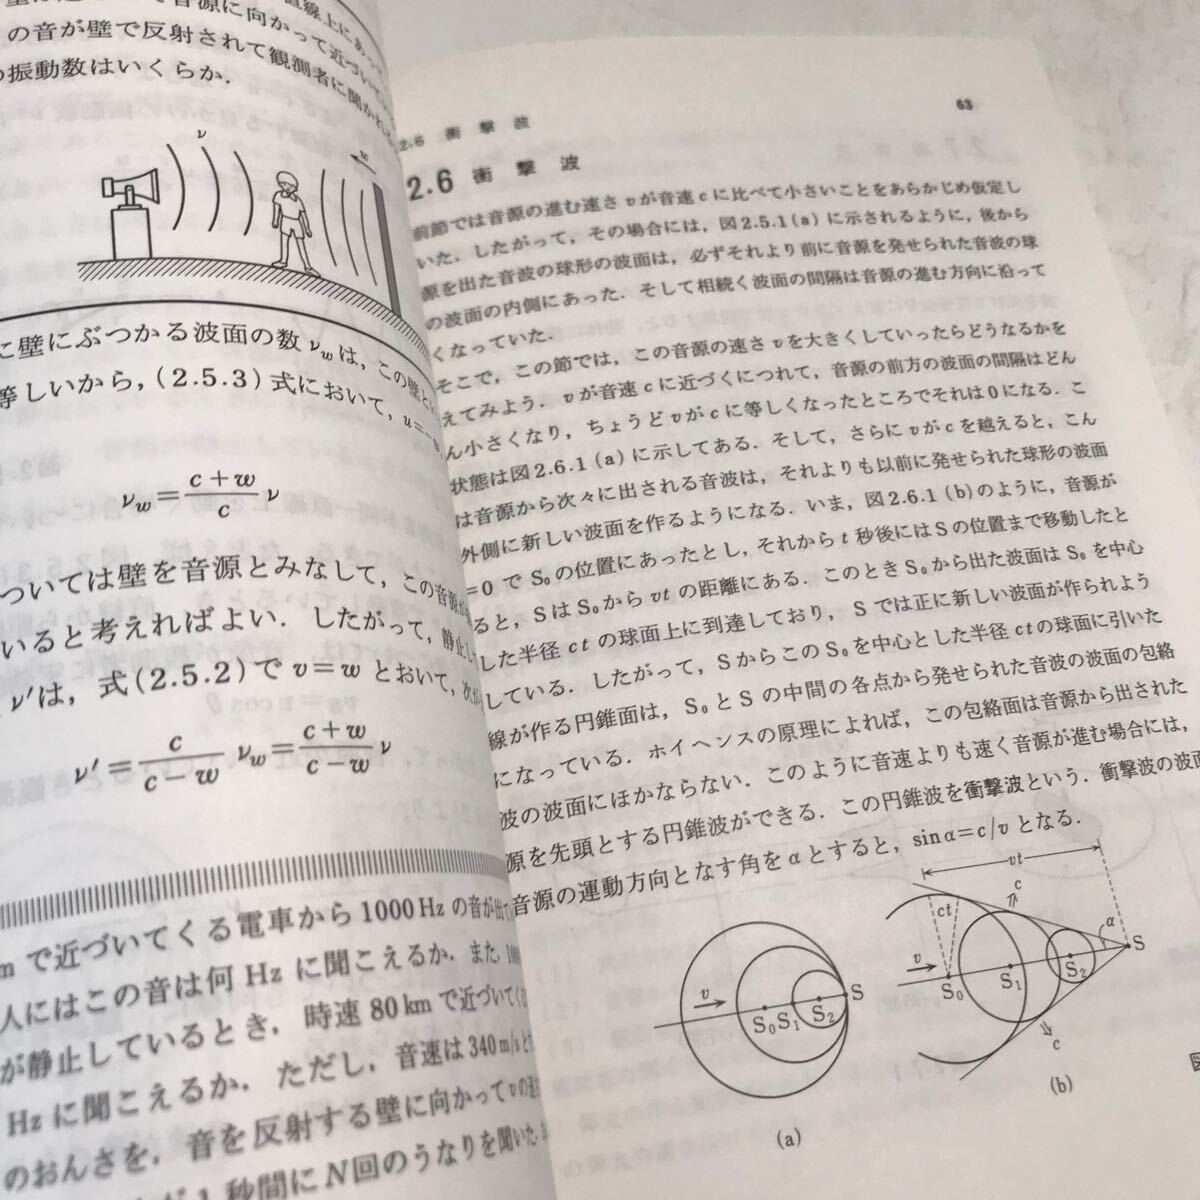 直線上にあって
音源に向かって近づいて
の音が壁で反射されて観測者に聞かれ
振動数はいくらか．
ν
w
に壁にぶつかる波面の数 νw は，この壁と
等しいから，(2.5.3) 式において，u=−
νw = c+w/c ν
ついては壁を音源とみなして，この音源が
いると考えればよい．したがって，静止し
ν′は，式(2.5.2)で v=w とおいて，次
ν′= c/c−w νw = c+w/c−w ν
m で近づいてくる電車から 1000 Hz の音が出て
人にはこの音は何 Hz に聞こえるか．また，
が静止しているとき，時速 80 km で近づいて
Hz に聞こえるか．ただし，音速は 340 m/s と
のおんさを，音を反射する壁に向かって v の速
1 秒間に N 回のうなりを聞いた．
2.6 衝撃波
63
2.6 衝撃波
前節では音源の進む速さ v が音速 c に比べて小さいことをあらかじめ仮定し
いた．したがって，その場合には，図 2.5.1 (a) に示されるように，後から
源を出た音波の球形の波面は，必ずそれより前に音源を発せられた音波の球
の波面の内側にあった．そして相続く波面の間隔は音源の進む方向に沿って
くなっていた．
そこで，この節では，この音源の速さ v を大きくしていったらどうなるかを
えてみよう．v が音速 c に近づくにつれて，音源の前方の波面の間隔はどん
ん小さくなり，ちょうど v が c に等しくなったところでそれは 0 になる．こ
状態は図 2.6.1 (a) に示してある．そして，さらに v が c を越えると，こん
は音源から次々に出される音波は，それよりも以前に発せられた球形の波面
外側に新しい波面を作るようになる．いま，図 2.6.1 (b) のように，音源が
=0 で S0 の位置にあったとし，それから t 秒後には S の位置まで移動したと
ると，S は S0 から vt の距離にある．このとき S0 から出た波面は S0 を中心
した半径 ct の球面上に到達しており，S では正に新しい波面が作られよう
している．したがって，S からこの S0 を中心とした半径 ct の球面に引いた
線が作る円錐面は，S0 と S の中間の各点から発せられた音波の波面の包絡
になっている．ホイヘンスの原理によれば，この包絡面は音源から出された
波の波面にほかならない．このように音速よりも速く音源が進む場合には，
源を先頭とする円錐波ができる．この円錐波を衝撃波という．衝撃波の波面
音源の運動方向となす角を α とすると，sin α=c/v となる．
v
S0 S1 S2 S
(a)
vt
ct
c
α
v
S0
S1
S2
S
c
(b)
図